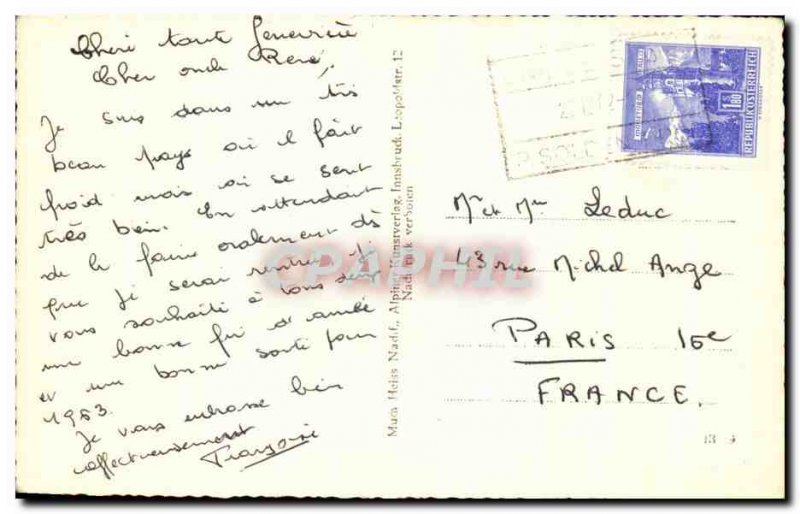 Chère tante Geneviève
Cher oncle René,
Je suis dans un très
beau pays où il fait
froid mais où se sent
très bien. En attendant
de le faire oralement dès
que je serai rentrée je
vous souhaite à tous deux
une bonne fin d'année
et une bonne santé pour
1963.
Je vous embrasse bien
affectueusement
Françoise
Mura Heiss Nachf., Alpiner Kunstverlag, Innsbruck, Leopoldstr. 12
Nachdruck verboten
REPUBLIK ÖSTERREICH
1.80
SOLDEN
Mr et Mme Leduc
43 rue Michel Ange
PARIS 16e
FRANCE.
CPAPHIL